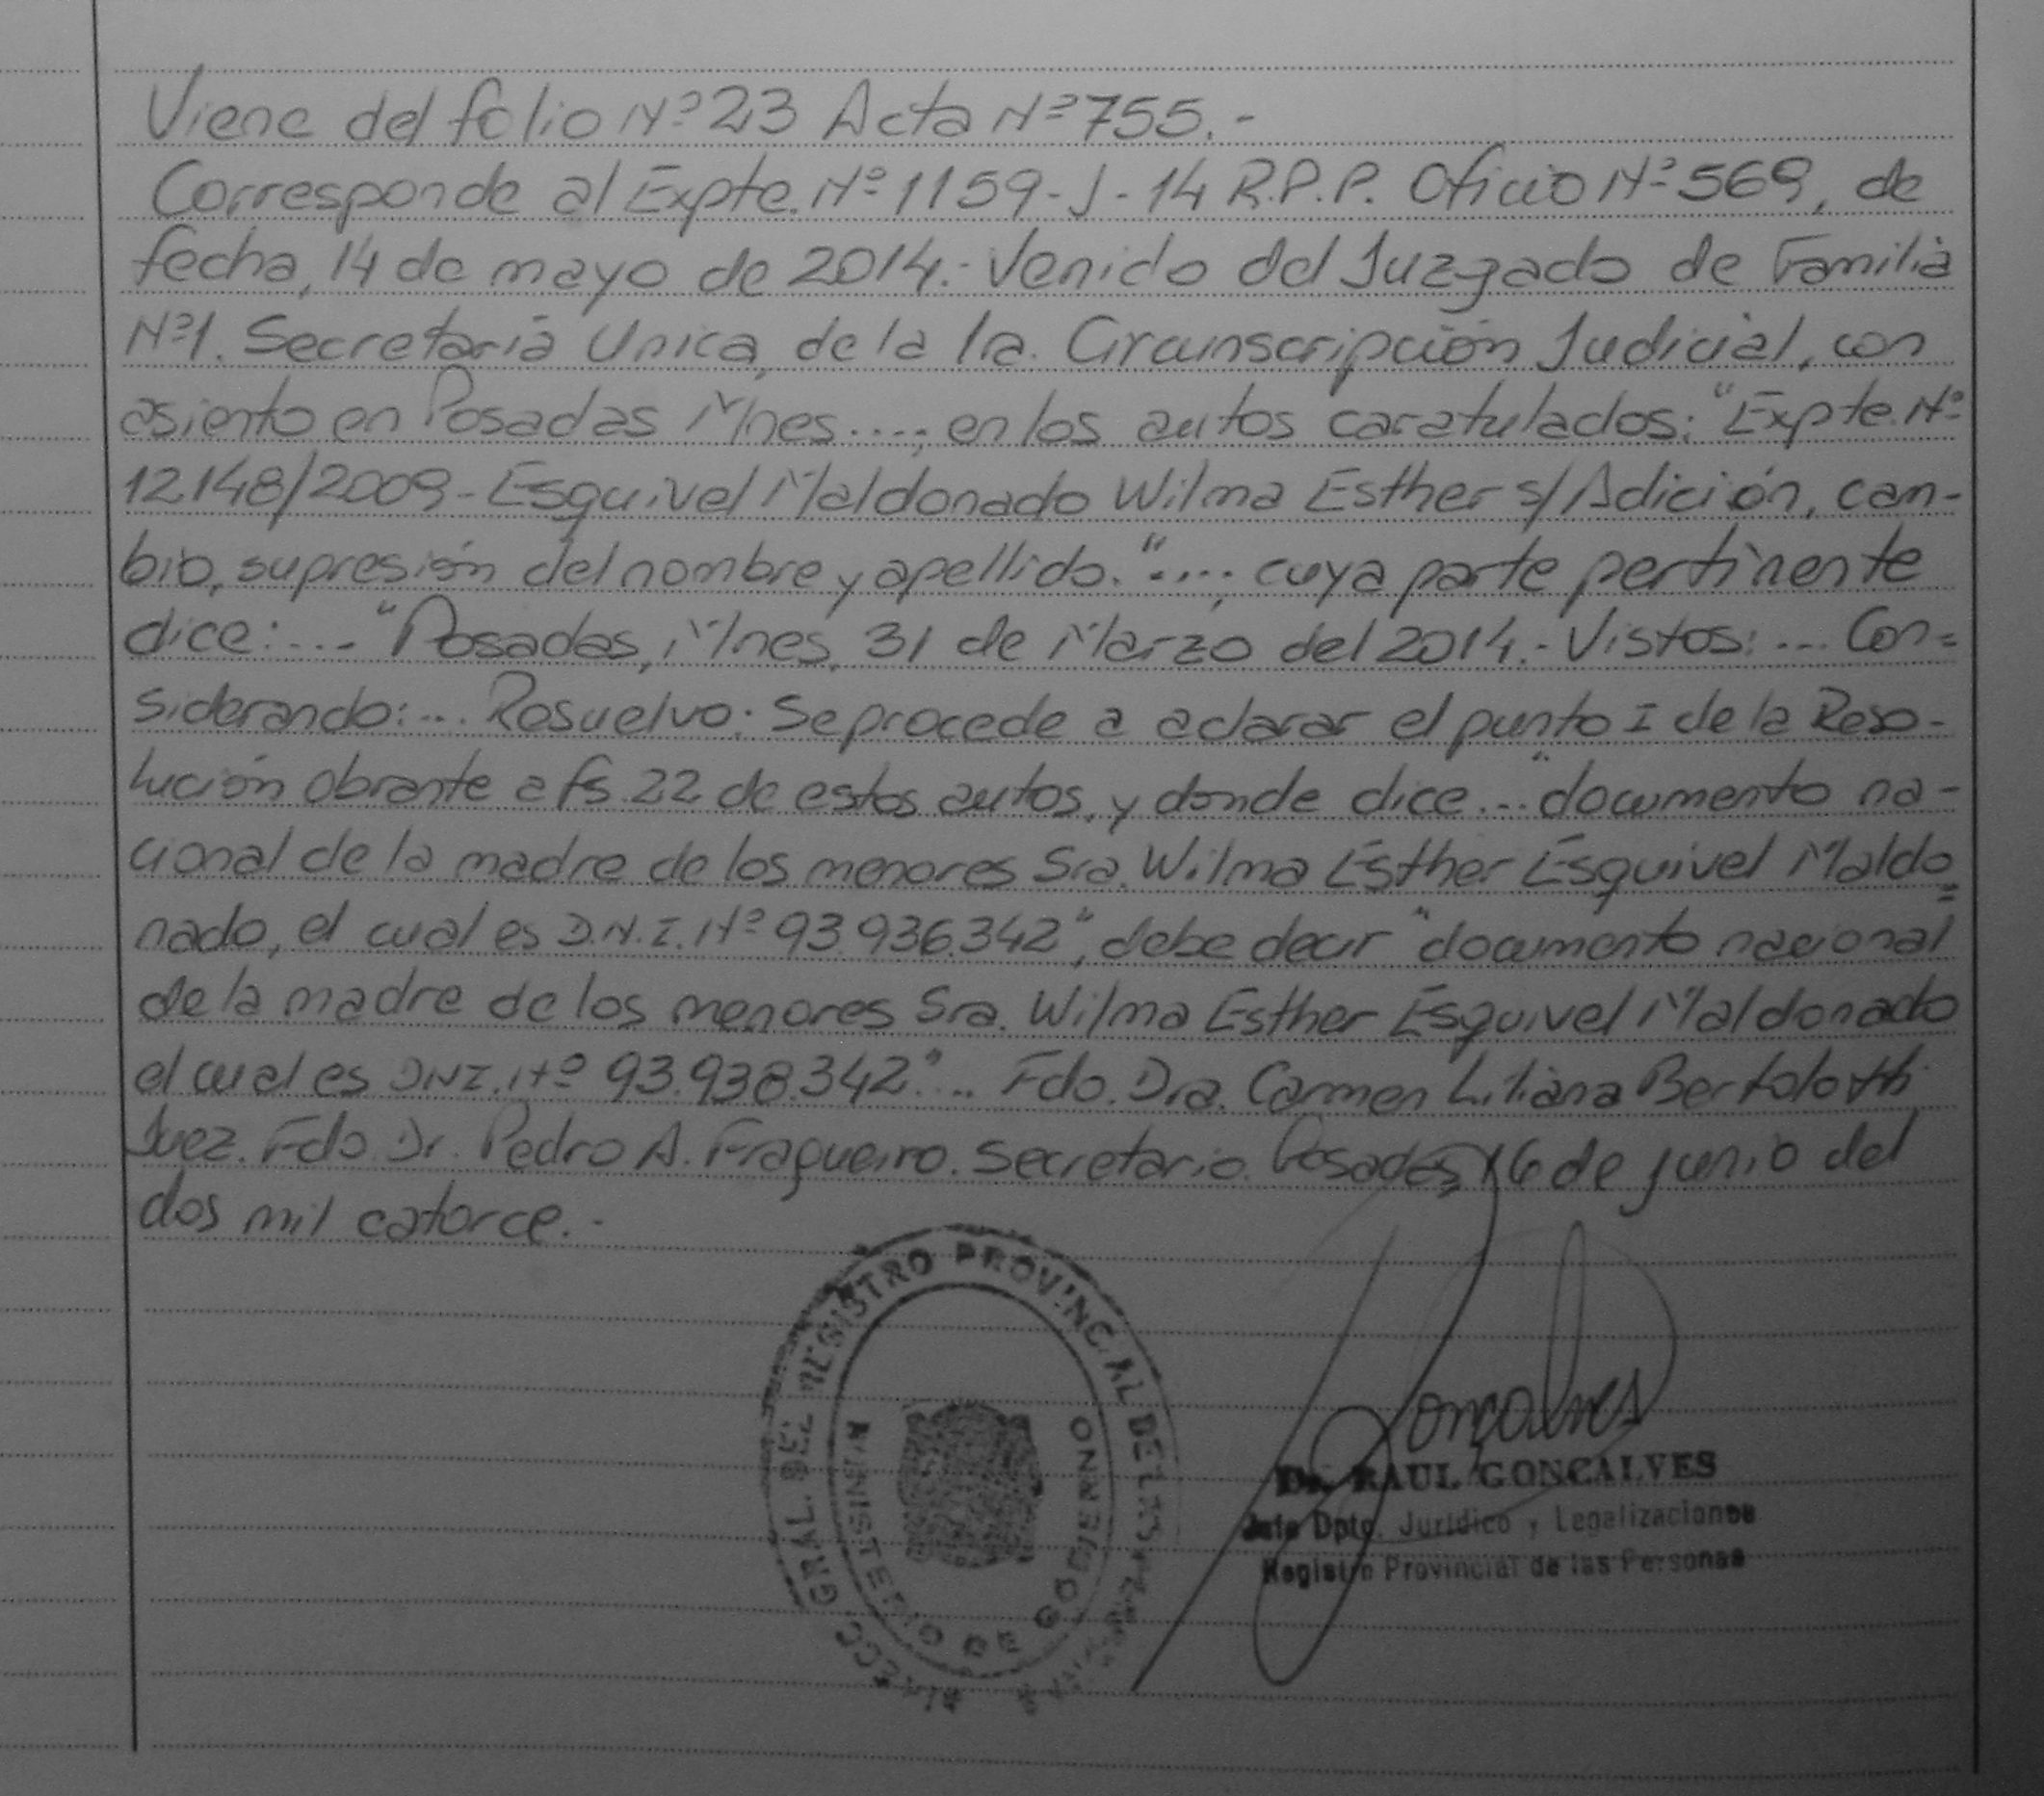 Viene del folio Nº 23 Acta Nº 755.-
Corresponde al Expte. Nº 1159-J-14 R.P.P. Oficio Nº 569, de
fecha, 14 de mayo de 2014.- Venido del Juzgado de Familia
Nº1. Secretaría Unica, de la 1ra. Circunscripción Judicial, con
asiento en Posadas Mnes...., en los autos caratulados: "Expte. Nº
12148/2009 - Esquivel Maldonado Wilma Esther s/Adición, cam-
bio, supresión del nombre y apellido."...., cuya parte pertinente
dice:.... "Posadas, Mnes, 31 de Marzo del 2014.- Vistos:... Con=
siderando:... Resuelvo: Se procede a aclarar el punto I de la Reso-
lución obrante a fs. 22 de estos autos, y donde dice..."documento na-
cional de la madre de los menores Sra. Wilma Esther Esquivel Maldo=
nado, el cual es D.N.I. Nº 93.936.342", debe decir "documento nacional
de la madre de los menores Sra. Wilma Esther Esquivel Maldonado
el cual es DNI. Nº 93.938.342"... Fdo. Dra. Carmen Liliana Bertolotti
Juez. Fdo. Dr. Pedro A. Fragueiro. Secretario. Posadas, 16 de junio del
dos mil catorce.-
DIRECC. GRAL. DEL REGISTRO PROVINCIAL DE LAS
MINISTERIO DE GOBIERNO
Goncalves
Dr. RAUL GONCALVES
Jefe Dpto. Jurídico y Legalizaciones
Registro Provincial de las Personas